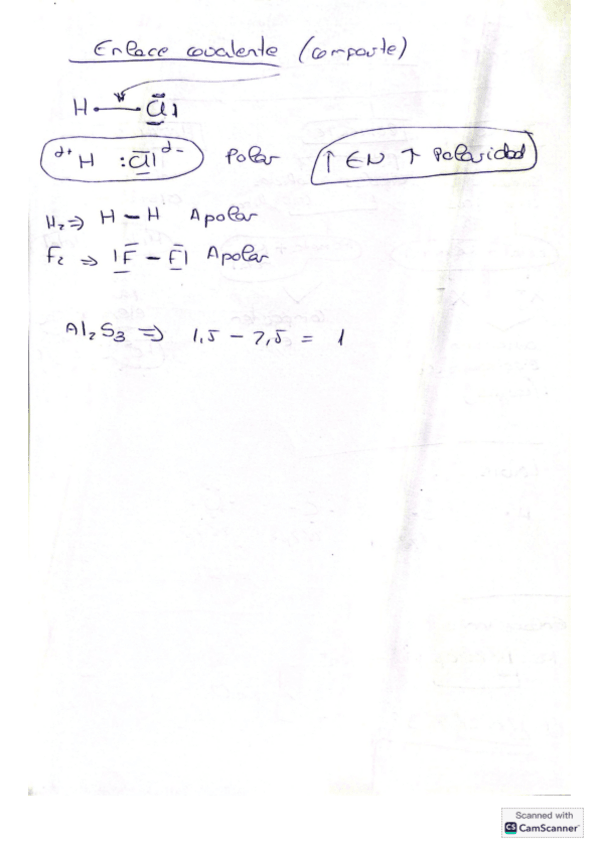 Enlace covalente (comparte)
H — Cl
δ+ H :Cl| δ- Polar ↑ EN ↑ Polaridad
H₂ ⇒ H – H Apolar
F₂ ⇒ |F – F| Apolar
Al₂S₃ ⇒ 1,5 – 2,5 = 1
Scanned with
CS CamScanner